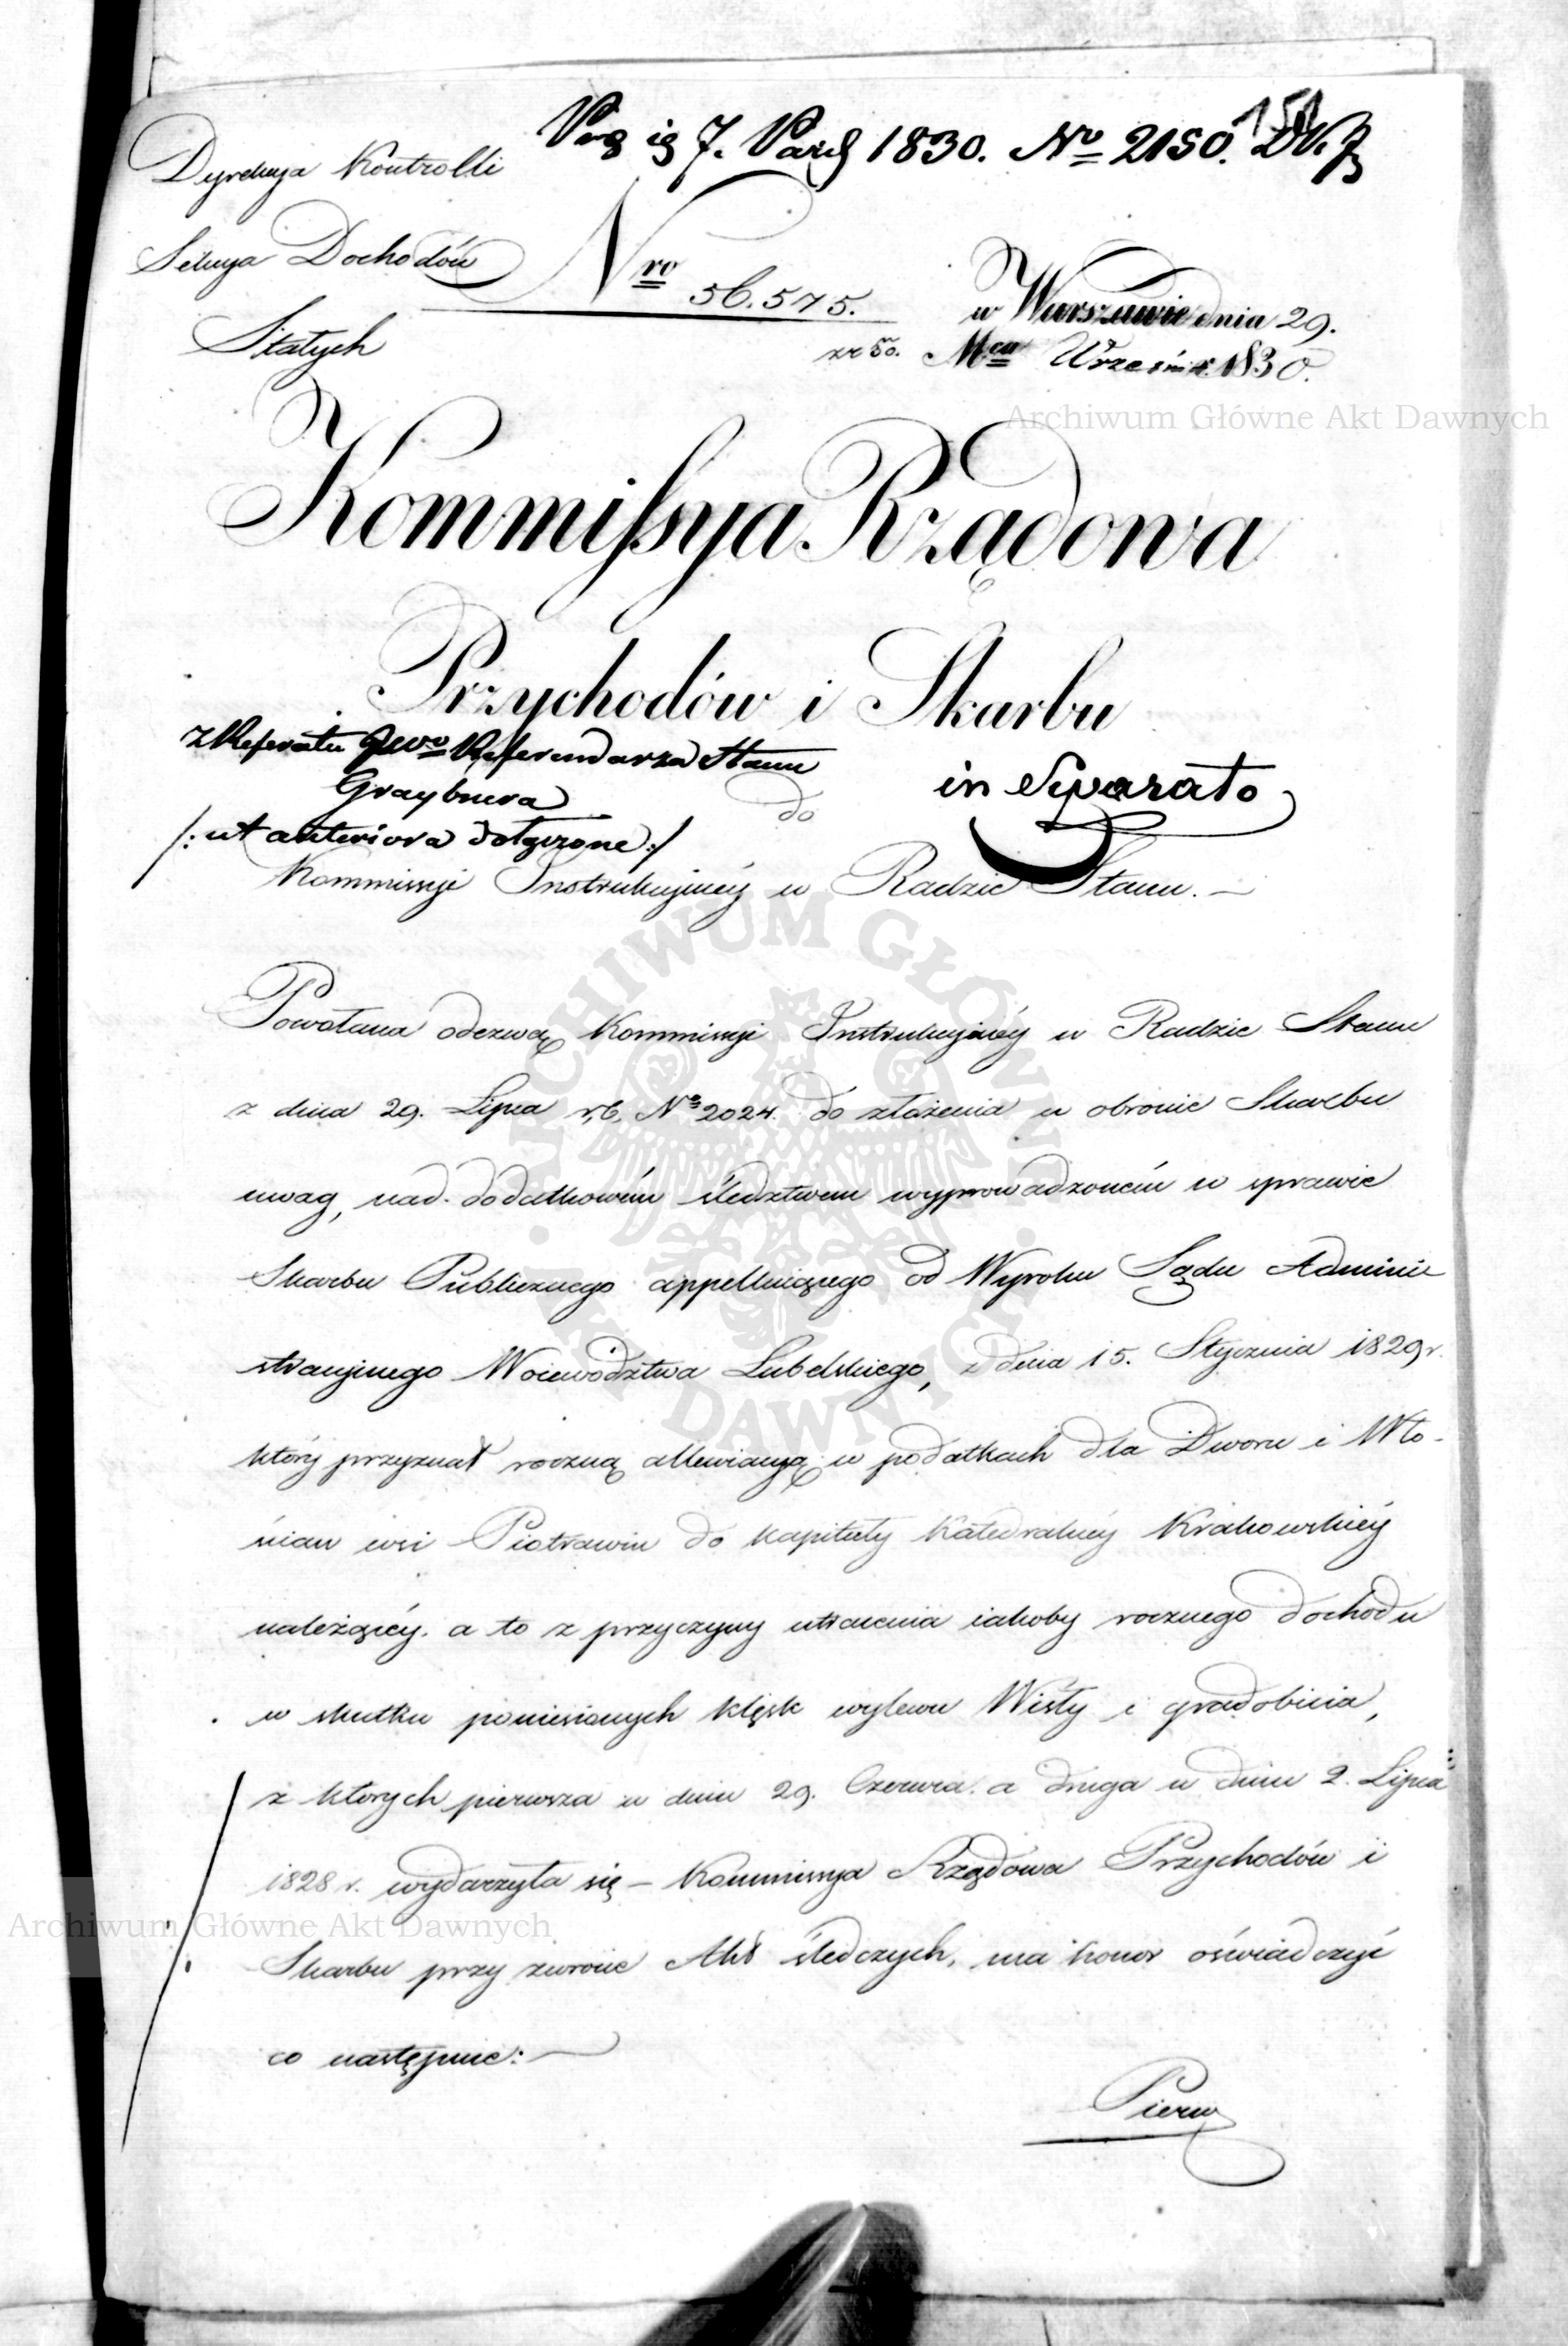 151
1830. No 2150.
Dyrekcya Kontrolli
Sekcya Dochodów
Stałych
Nro 56.575.
w Warszawie dnia 29.
Mca Września 1830.
Archiwum Główne Akt Dawnych
Kommissya Rządowa
Przychodów i Skarbu
z Referatu JWo Referendarza Stanu
Graybnera
in Separato
do
/: ut anteriora dołączone :/
Kommissyi Instrukcyinéy w Radzie Stanu. —
Powołana odezwą Kommissyi Instrukcyinéy w Radzie Stanu
z dnia 29. Lipca r, b, No 2024. do złożenia w obronie Skarbu
uwag, nad dodatkowém śledztwem wyprowadzoném w sprawie
Skarbu Publicznego appelluiącego od Wyroku Sądu Admini-
stracyinego Woiewództwa Lubelskiego, z dnia 15. Stycznia 1829 r.
który przyznał roczną allewiacyą w podatkach dla Dworu i Wło-
ścian wsi Piotrawin do Kapituły Katedralnéy Krakowskiéy
należącéy. a to z przyczyny utracenia iakoby rocznego dochodu
w skutku poniesionych klęsk wylewu Wisły i gradobicia,
z których pierwsza w dniu 29. Czerwca. a druga w dniu 2. Lipca
1828 r. wydarzyła się — Kommissya Rządowa Przychodów i
Archiwum Główne Akt Dawnych
Skarbu przy zwrocie Akt śledczych, ma honor oświadczyć
co następuie: —
Pierw
ARCHIWUM GŁÓWNE AKT DAWNYCH